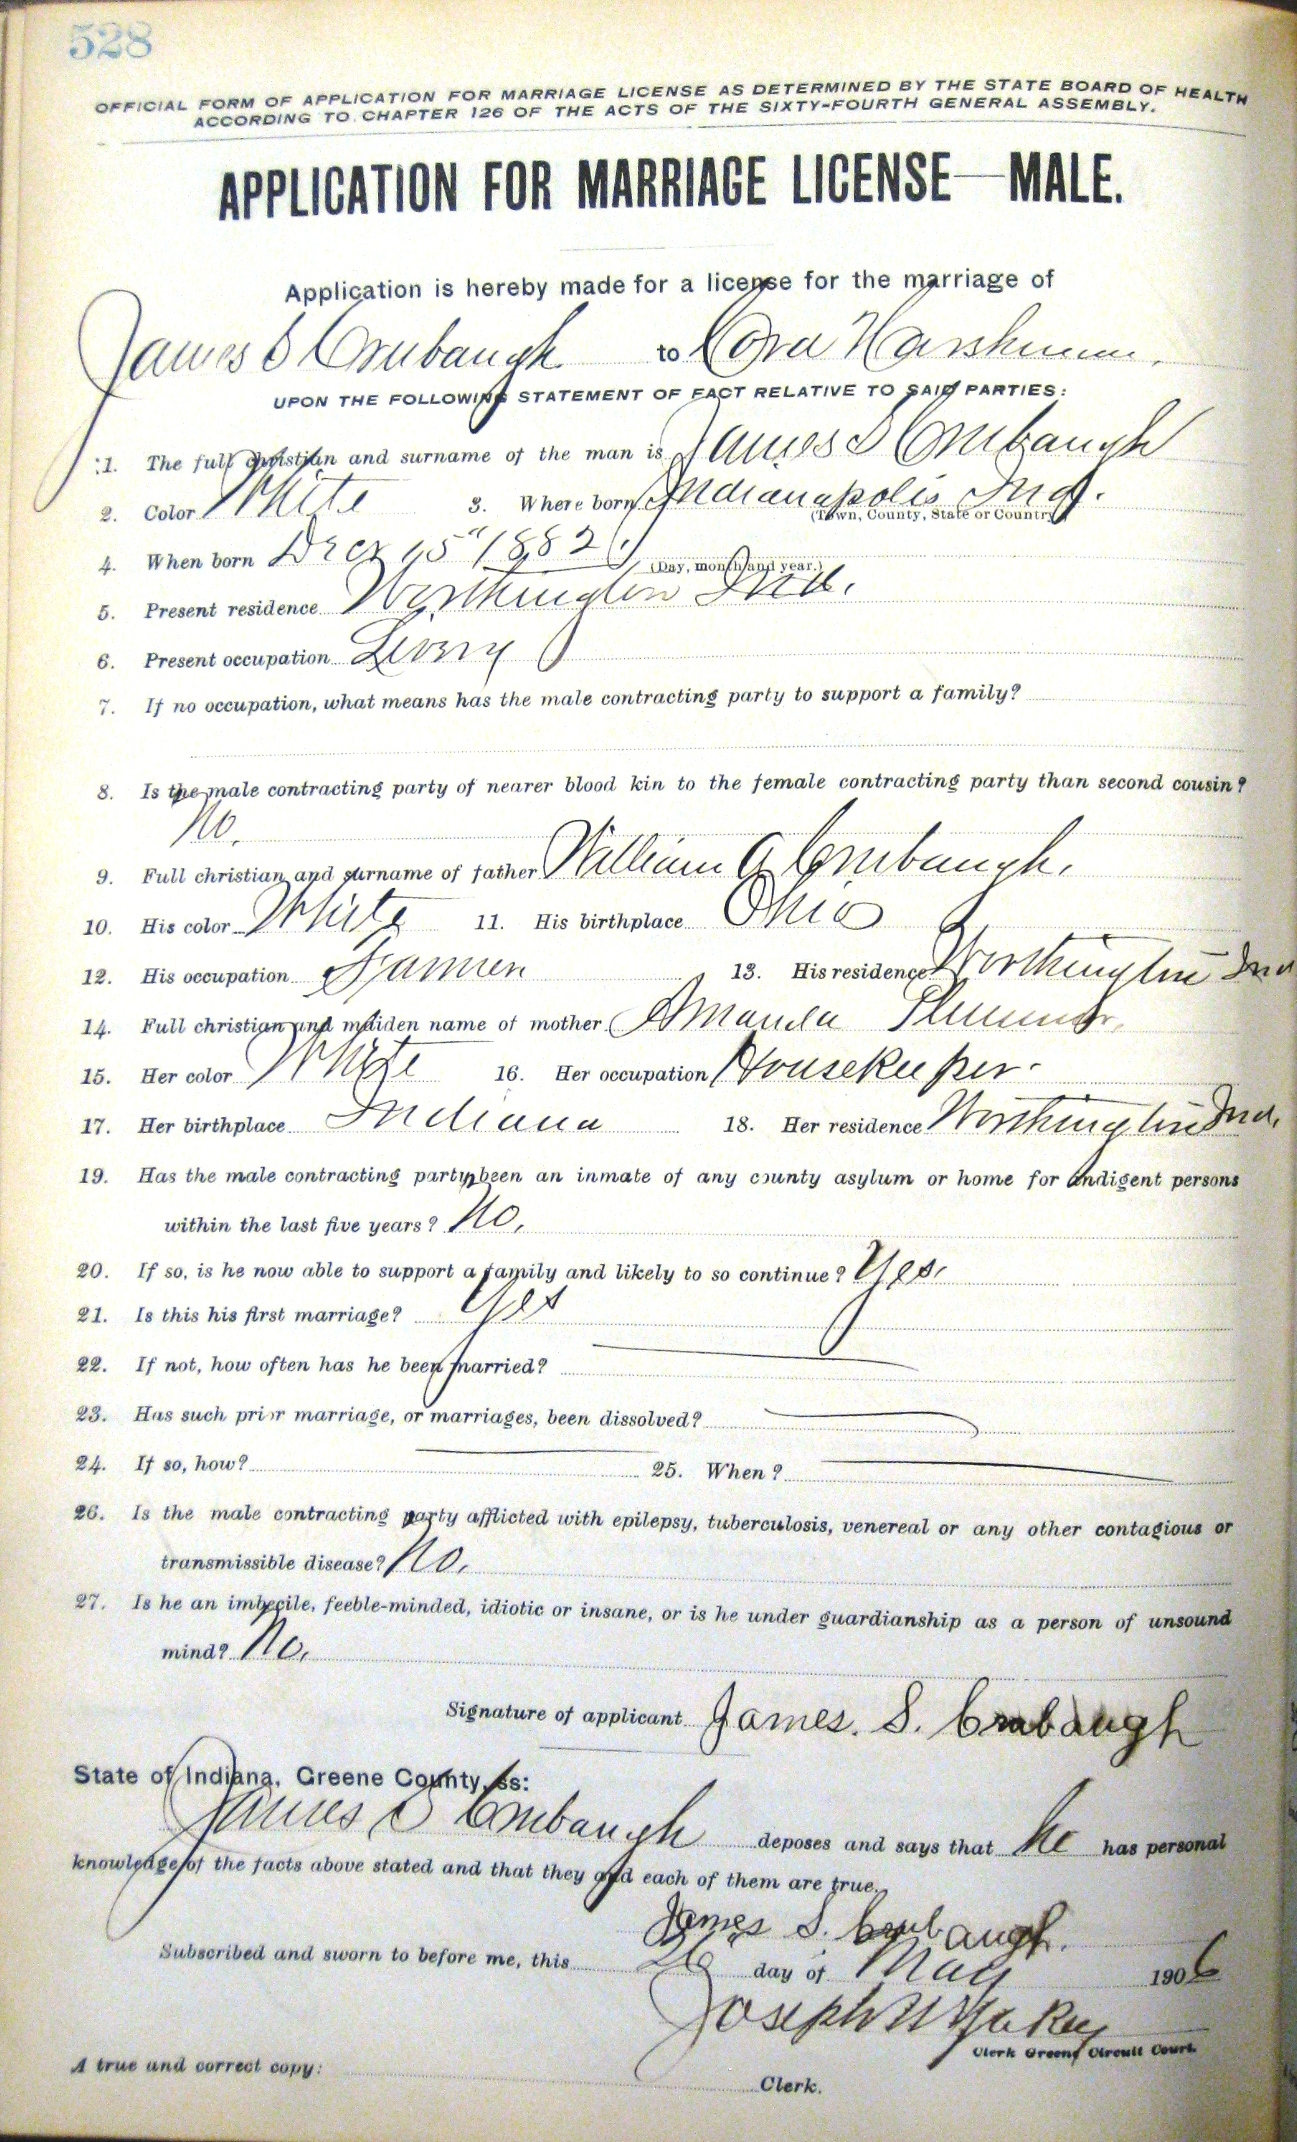 528
OFFICIAL FORM OF APPLICATION FOR MARRIAGE LICENSE AS DETERMINED BY THE STATE BOARD OF HEALTH
ACCORDING TO CHAPTER 126 OF THE ACTS OF THE SIXTY-FOURTH GENERAL ASSEMBLY.
APPLICATION FOR MARRIAGE LICENSE—MALE.
Application is hereby made for a license for the marriage of
James S Crubaugh to Cora Harshman.
UPON THE FOLLOWING STATEMENT OF FACT RELATIVE TO SAID PARTIES:
1. The full christian and surname of the man is James S Crubaugh
2. Color White 3. Where born Indianapolis Ind.
(Town, County, State or Country)
4. When born Dec 15" 1882.
(Day, month and year.)
5. Present residence Worthington Ind.
6. Present occupation Livery
7. If no occupation, what means has the male contracting party to support a family?
8. Is the male contracting party of nearer blood kin to the female contracting party than second cousin?
No.
9. Full christian and surname of father William A Crubaugh.
10. His color White 11. His birthplace Ohio
12. His occupation Farmer 13. His residence Worthington Ind
14. Full christian and maiden name of mother Amanda Plummer.
15. Her color White 16. Her occupation Housekeeper.
17. Her birthplace Indiana 18. Her residence Worthington Ind.
19. Has the male contracting party been an inmate of any county asylum or home for indigent persons
within the last five years? No.
20. If so, is he now able to support a family and likely to so continue? Yes.
21. Is this his first marriage? Yes
22. If not, how often has he been married?
23. Has such prior marriage, or marriages, been dissolved?
24. If so, how? 25. When?
26. Is the male contracting party afflicted with epilepsy, tuberculosis, venereal or any other contagious or
transmissible disease? No.
27. Is he an imbecile, feeble-minded, idiotic or insane, or is he under guardianship as a person of unsound
mind? No.
Signature of applicant James. S. Crubaugh
State of Indiana, Greene County, ss:
James S Crubaugh deposes and says that he has personal
knowledge of the facts above stated and that they and each of them are true.
James S. Crubaugh.
Subscribed and sworn to before me, this 26" day of May 1906
Joseph W Yakey
Clerk Greene Circuit Court.
A true and correct copy:
Clerk.